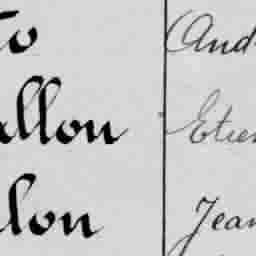 to And
allon Etien
lon Jean